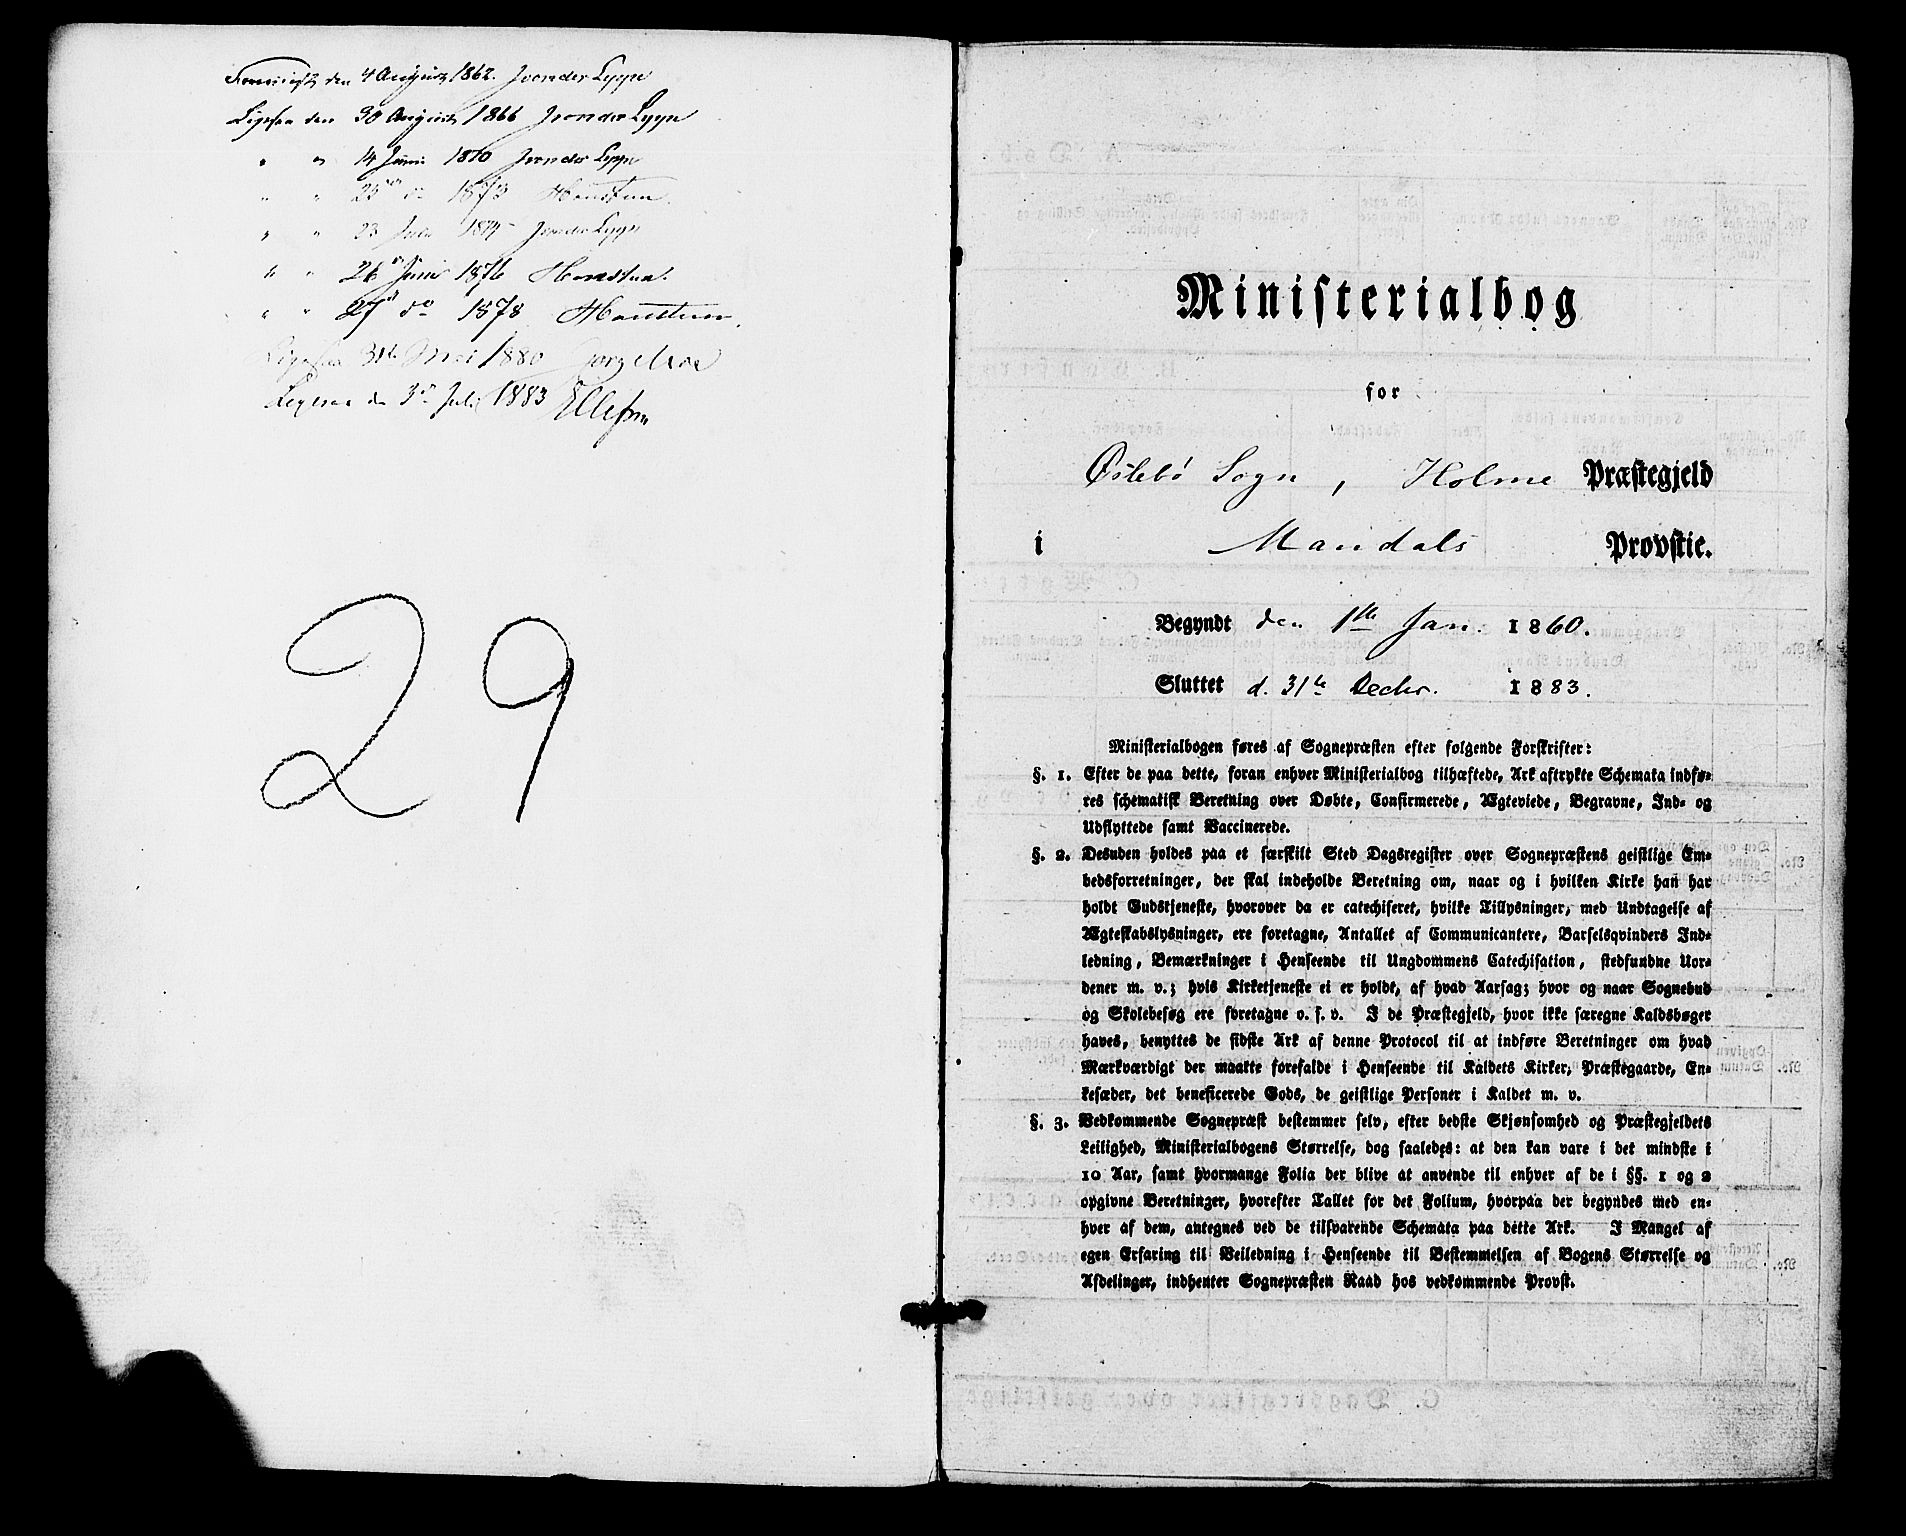 Fremvist den 4 August 1862. J von der Lippe
Ligesaa den 30 August 1866 J von der Lippe
" " 14 Juni 1870 J von der Lippe
" " 25 do 1873 Hansteen.
" " 23 Juli 1874 J von der Lippe
" " 26 Juni 1876 Hansteen.
" " 27 do 1878 Hansteen.
Ligesaa 31te Mai 1880 Jørg. Moe
Ligesaa d 3die Juli 1883
29
Ministerialbog
for
Øslebø Sogn, Holme Præstegjeld
i Mandals Provstie.
Begyndt den 1ste Jan. 1860.
Sluttet d. 31te Decbr. 1883.
Ministerialbogen føres af Sognepræsten efter følgende Forskrifter:
§. 1. Efter de paa dette, foran enhver Ministerialbog tilhæftede, Ark aftrykte Schemata indfø-
res schematisk Beretning over Døbte, Confirmerede, Ægteviede, Begravne, Ind- og
Udflyttede samt Vaccinerede.
§. 2. Desuden holdes paa et særskilt Sted Dagsregister over Sognepræstens geistlige Em-
bedsforretninger, der skal indeholde Beretning om, naar og i hvilken Kirke han har
holdt Gudstjeneste, hvorover da er catechiseret, hvilke Tillysninger, med Undtagelse af
Ægteskabslysninger, ere foretagne, Antallet af Communicantere, Barselqvinders Ind-
ledning, Bemærkninger i Henseende til Ungdommens Catechisation, stedfundne Uor-
dener m. v.; hvis Kirketjeneste ei er holdt, af hvad Aarsag; hvor og naar Sognebud
og Skolebesøg ere foretagne o. s. v. I de Præstegjeld, hvor ikke særegne Kaldsbøger
haves, benyttes de sidste Ark af denne Protocol til at indføre Beretninger om hvad
Mærkværdigt der maatte forefalde i Henseende til Kaldets Kirker, Præstegaarde, En-
kesæder, det beneficerede Gods, de geistlige Personer i Kaldet m. v.
§. 3. Vedkommende Sognepræst bestemmer selv, efter bedste Skjønsomhed og Præstegjeldets
Leilighed, Ministerialbogens Størrelse, dog saaledes: at den kan vare i det mindste i
10 Aar, samt hvormange Folia der blive at anvende til enhver af de i §§. 1 og 2
opgivne Beretninger, hvorefter Tallet for det Folium, hvorpaa der begyndes med en-
hver af dem, antegnes ved de tilsvarende Schemata paa dette Ark. I Mangel af
egen Erfaring til Veiledning i Henseende til Bestemmelsen af Bogens Størrelse og
Afdelinger, indhenter Sognepræsten Raad hos vedkommende Provst.